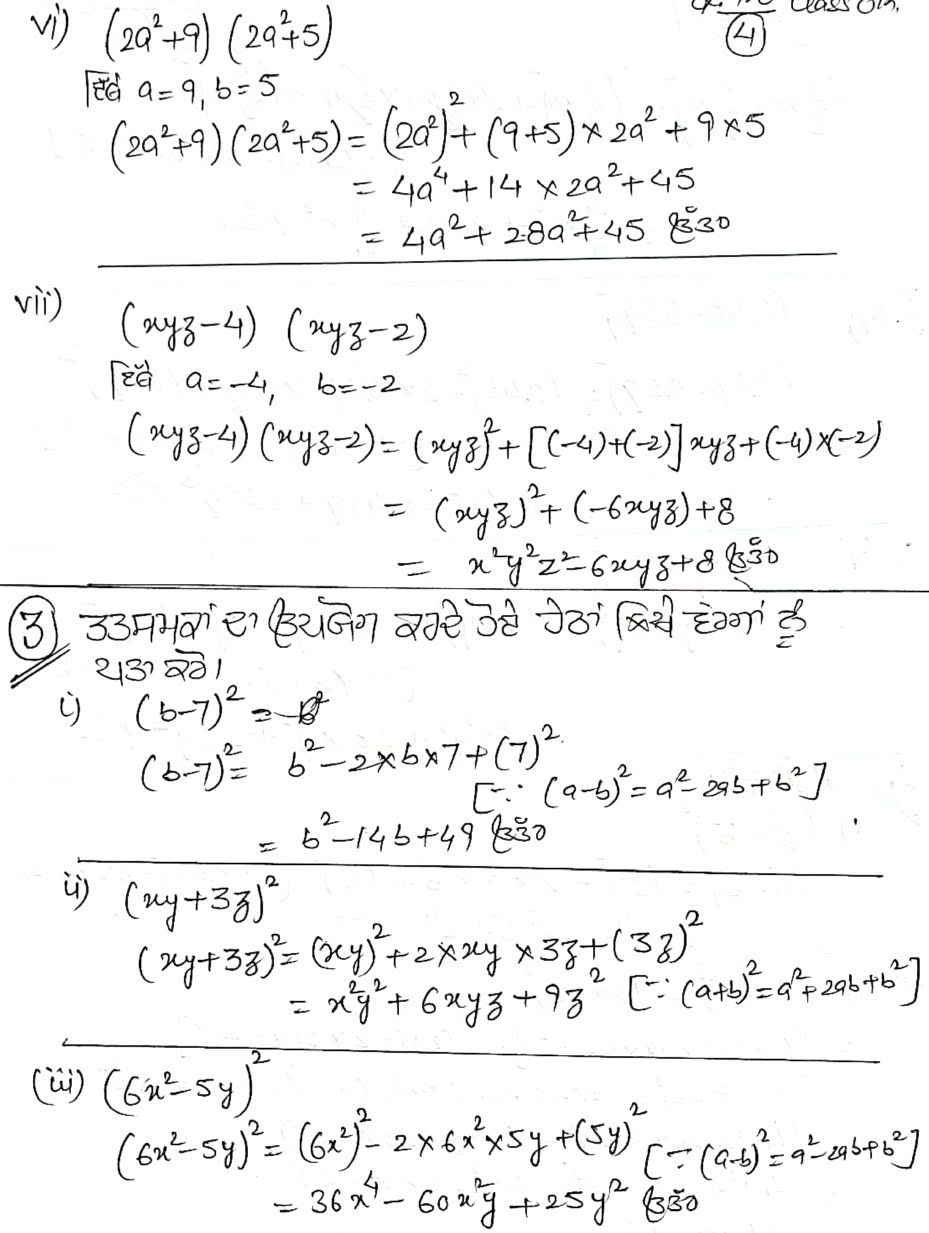 Class 8th.
4
vi) (2a²+9) (2a²+5)
ਇੱਥੇ a = 9, b = 5
(2a²+9) (2a²+5) = (2a²)² + (9+5) × 2a² + 9 × 5
= 4a⁴ + 14 × 2a² + 45
= 4a² + 28a² + 45 ਉੱਤਰ
vii) (xyz-4) (xyz-2)
ਇੱਥੇ a = -4, b = -2
(xyz-4) (xyz-2) = (xyz)² + [(-4)+(-2)] xyz + (-4)×(-2)
= (xyz)² + (-6xyz) + 8
= x²y²z² - 6xyz + 8 ਉੱਤਰ
3 ਤਤਸਮਕਾਂ ਦਾ ਉਪਯੋਗ ਕਰਦੇ ਹੋਏ ਹੇਠਾਂ ਲਿਖੇ ਵਰਗਾਂ ਨੂੰ
ਪਤਾ ਕਰੋ।
i) (b-7)² =
(b-7)² = b² - 2×b×7 + (7)²
[∵ (a-b)² = a² - 2ab + b²]
= b² - 14b + 49 ਉੱਤਰ
ii) (xy+3z)²
(xy+3z)² = (xy)² + 2×xy×3z + (3z)²
= x²y² + 6xyz + 9z² [∵ (a+b)² = a² + 2ab + b²]
(iii) (6x²-5y)²
(6x²-5y)² = (6x²)² - 2×6x²×5y + (5y)² [∵ (a-b)² = a² - 2ab + b²]
= 36x⁴ - 60x²y + 25y² ਉੱਤਰ